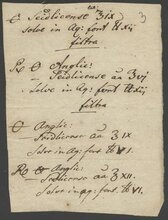 Seidlicense ʒix 3
solve in Aq: font ℔xij
filtra
R⊖ Anglic:
Seidlicense aa ʒvj
solve in Aq: font ℔xij
filtra
⊖ Anglic:
Seidlicense aa ʒIX
Solv: in aq: font. ℔VI.
R⊖ Anglic:
Seidlicense aa ʒXII.
Solv: in aq: font. ℔VI.